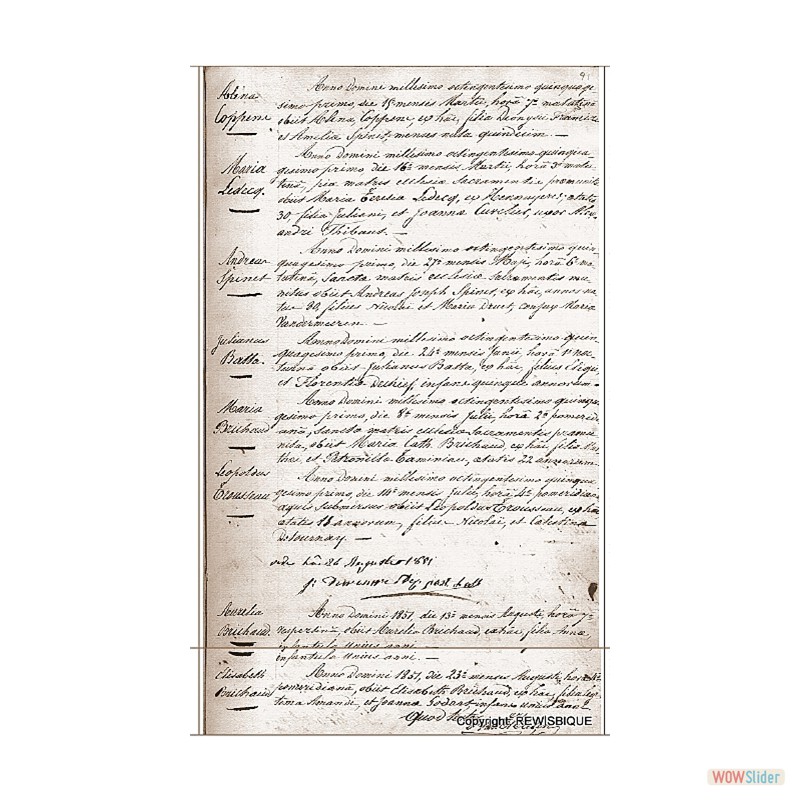 91
Helena Coppene
Anno Domine millesimo octingentesimo quinquage-
simo primo, die 15 mensis Martii, horâ 7ª matutinâ
obiit Helena Coppene, ex hac, filia Dionysii Francisci
et Amelia Spinet, menses nata quindecim. —
Maria Ledecq.
Anno Domini millesimo octingentesimo quinqua
gesimo primo, die 16ª mensis Martii, horâ 3ª matu-
tinâ, piæ matris ecclesiæ Sacramentis præmunita
obiit Maria Teresia Ledecq, ex Hennuyeres, ætatis
30, filia Juliani, et Joanna Curelier, uxor Alex-
andri Thibaut. —
Andreas Spinet
Anno Domini millesimo octingentesimo quin-
quagesimo primo, die 27ª mensis Maji, horâ 6ª ma-
tutinâ, Sancta matris ecclesiæ sacramentis mu-
nitus obiit Andreas Joseph Spinet, ex hac, annos na-
tus 80, filius Nicolai et Maria Druet, conjux Maria
Vandermeeren. —
Julianus Batta.
Anno Domini millesimo octingentesimo quin-
quagesimo primo, die 24ª mensis Junii, horâ
obiit Julianus Batta, ex hac, filius Eligii,
et Florentia Duhief, infans quinque annorum. -
Maria Brichaud
Anno Domini millesimo octingentesimo quinqua
gesimo primo, die 8ª mensis Julii, horâ 2ª pomeridi-
anâ, sancta matris ecclesiæ sacramentis præmu
nita, obiit Maria Cath. Brichaud, ex hac, filia
et Petronilla Taminiau, ætatis 22 annorum.
Leopoldus Trousseau
Anno Domini millesimo octingentesimo quinqua
gesimo primo, die 14ª mensis Julii, horâ 4ª pomeridianâ
aquis submersus obiit Leopoldus Trousseau, ex hac
ætatis 11 annorum, filius Nicolai, et Celestina
Detournay. —
hac 26 Augusti 1851
Aurelia Brichaud.
Anno Domini 1851, die 13ª mensis Augusti, horâ 7ª
vespertinâ, obiit Aurelia Brichaud, ex hac, filia Anna,
infantula unius anni.
infantula unius anni. —
Elisabeth Brichaud
Anno Domini 1851, die 23ª mensis Augusti, horâ 4ª
pomeridianâ, obiit Elisabeth Brichaud, ex hac, filia
Amandi, et Joanna Godart infans unius anni
Quod
Copyright: REWISBIQUE
WOWSlider